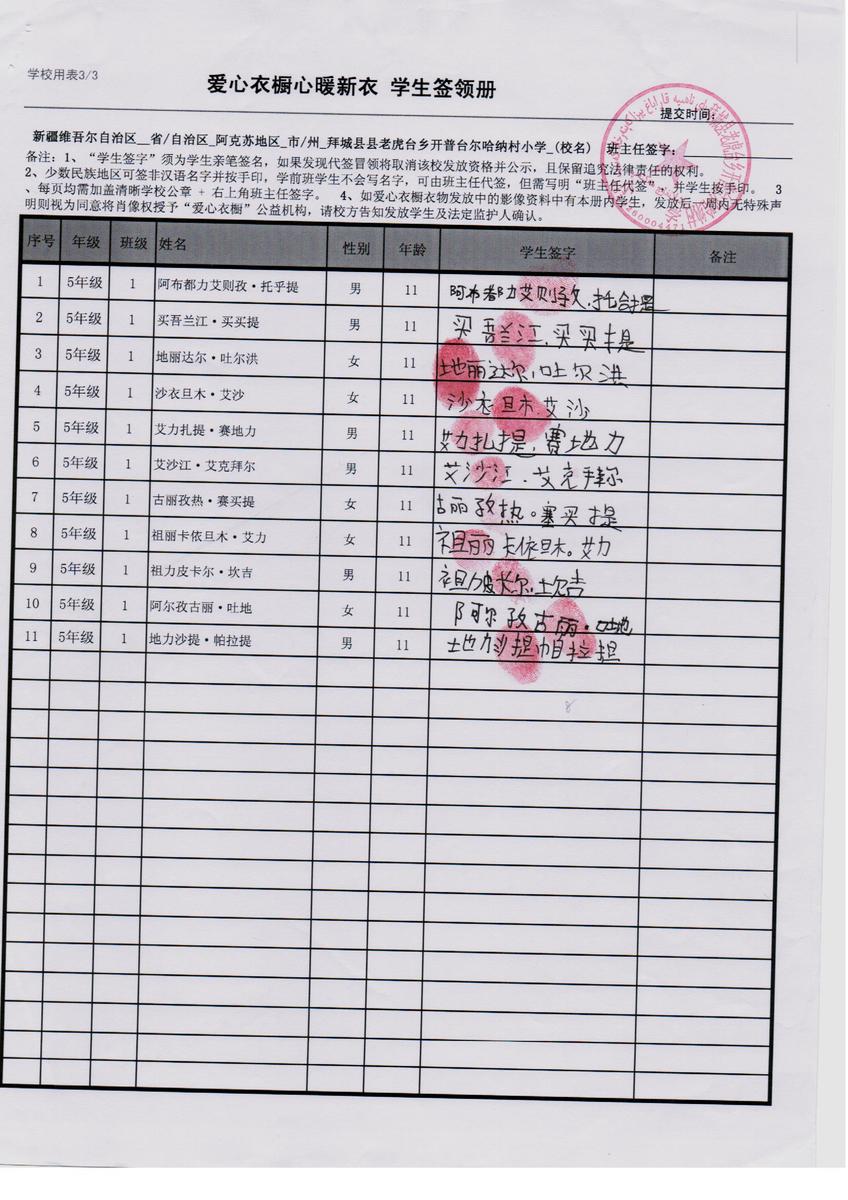 学校用表3/3
爱心衣橱心暖新衣 学生签领册
提交时间：
新疆维吾尔自治区__省/自治区_阿克苏地区_市/州_拜城县县老虎台乡开普台尔哈纳村小学_(校名) 班主任签字：
备注：1、“学生签字”须为学生亲笔签名，如果发现代签冒领将取消该校发放资格并公示，且保留追究法律责任的权利。
2、少数民族地区可签非汉语名字并按手印，学前班学生不会写名字，可由班主任代签，但需写明“班主任代签”，并学生按手印。 3
、每页均需加盖清晰学校公章 + 右上角班主任签字。 4、如爱心衣橱衣物发放中的影像资料中有本册内学生，发放后一周内无特殊声
明则视为同意将肖像权授予“爱心衣橱”公益机构，请校方告知发放学生及法定监护人确认。
序号 年级 班级 姓名 性别 年龄 学生签字 备注
1 5年级 1 阿布都力艾则孜·托乎提 男 11 阿布都力艾则孜.托合提
2 5年级 1 买吾兰江·买买提 男 11 买吾兰江.买买提
3 5年级 1 地丽达尔·吐尔洪 女 11 地丽达尔.吐尔洪
4 5年级 1 沙衣旦木·艾沙 女 11 沙衣旦木.艾沙
5 5年级 1 艾力扎提·赛地力 男 11 艾力扎提.赛地力
6 5年级 1 艾沙江·艾克拜尔 男 11 艾沙江.艾克拜尔
7 5年级 1 古丽孜热·赛买提 女 11 古丽孜热。塞买提
8 5年级 1 祖丽卡依旦木·艾力 女 11 祖丽卡依旦木。艾力
9 5年级 1 祖力皮卡尔·坎吉 男 11
10 5年级 1 阿尔孜古丽·吐地 女 11 阿尔孜古丽·吐地
11 5年级 1 地力沙提·帕拉提 男 11 地力沙提帕拉提
8